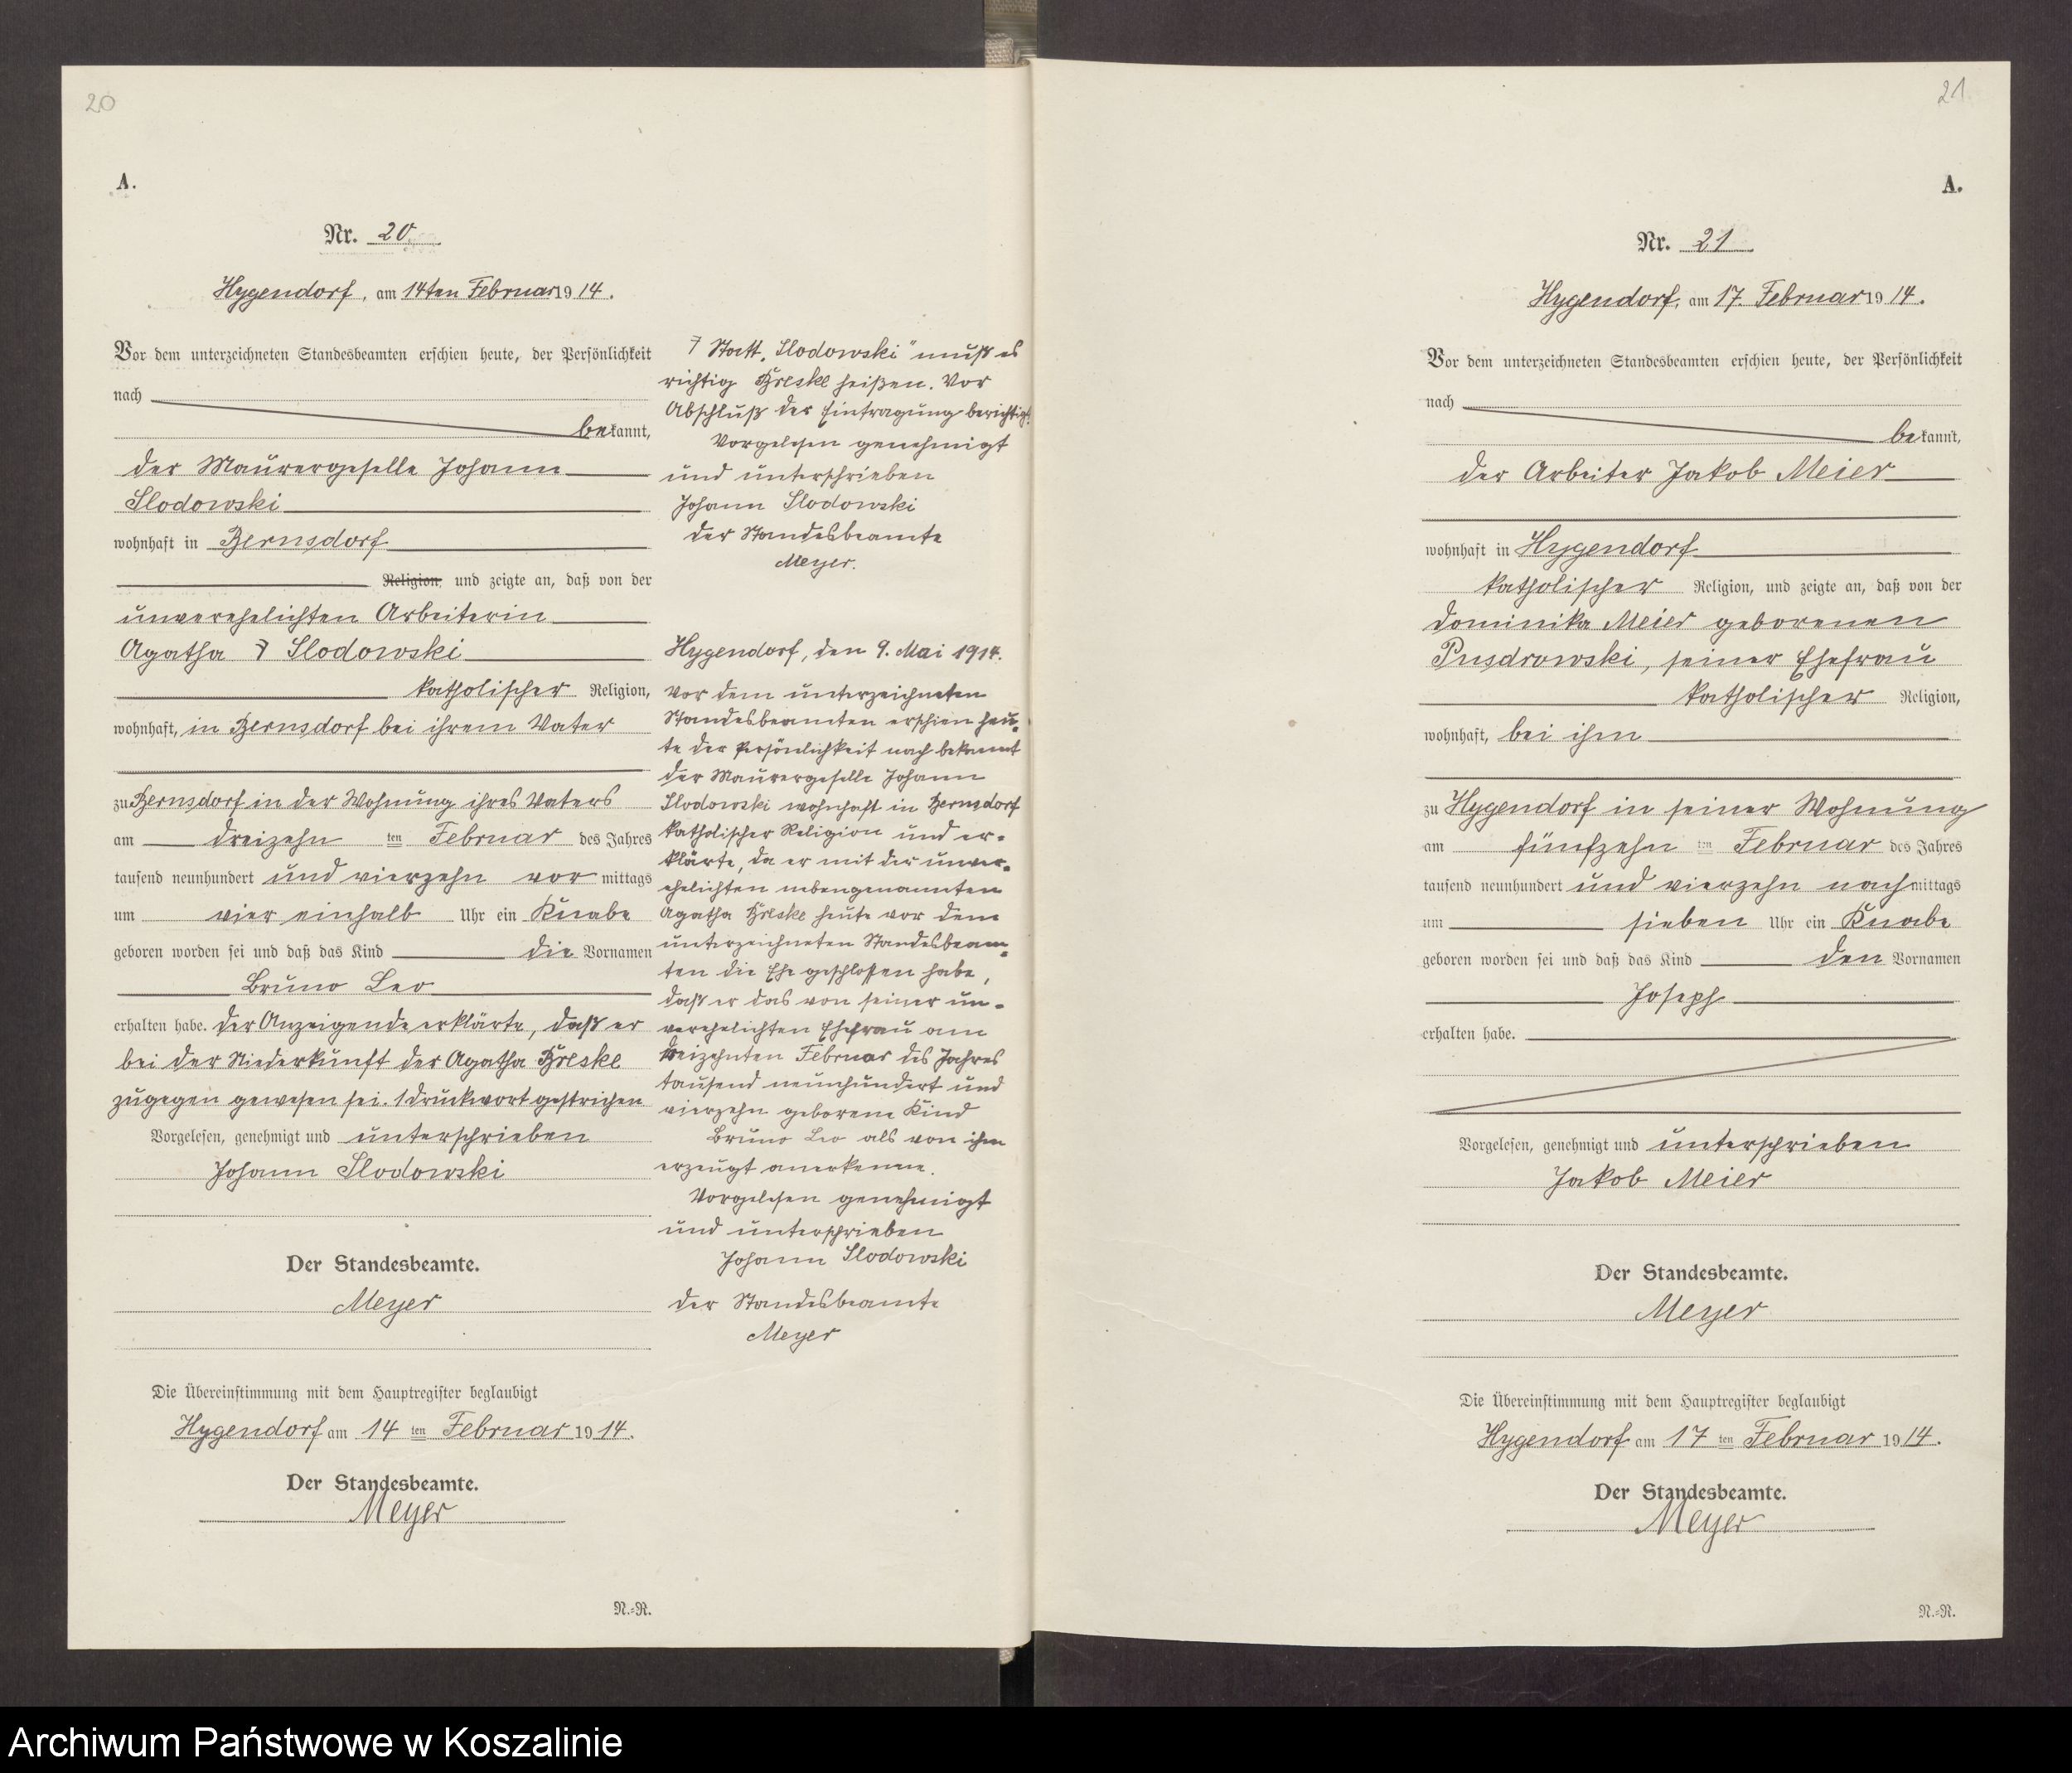 20
A.
Nr. 20
Hygendorf, am 14ten Februar 1914.
Vor dem unterzeichneten Standesbeamten erschien heute, der Persönlichkeit
nach
bekannt,
der Maurergeselle Johann
Slodowski
wohnhaft in Bernsdorf
Religion, und zeigte an, daß von der
unverehelichten Arbeiterin
Agatha Slodowski
katholischer Religion,
wohnhaft, in Bernsdorf bei ihrem Vater
zu Bernsdorf in der Wohnung ihres Vaters
am dreizehnten Februar des Jahres
tausend neunhundert und vierzehn vormittags
um vier einhalb Uhr ein Knabe
geboren worden sei und daß das Kind die Vornamen
Bruno Leo
erhalten habe. Der Anzeigende erklärte, daß er
bei der Niederkunft der Agatha Breske
zugegen gewesen sei. 1 Druckwort gestrichen
Vorgelesen, genehmigt und unterschrieben
Johann Slodowski
Der Standesbeamte.
Meyer
Die Übereinstimmung mit dem Hauptregister beglaubigt
Hygendorf am 14ten Februar 1914.
Der Standesbeamte.
Meyer
N.-R.
Statt „Slodowski" muß es
richtig Breske heißen. Vor
Abschluß der Eintragung berichtigt.
Vorgelesen genehmigt
und unterschrieben
Johann Slodowski
der Standesbeamte
Meyer.
Hygendorf, den 9. Mai 1914.
Vor dem unterzeichneten
Standesbeamten erschien heu-
te der Persönlichkeit nach bekannt
der Maurergeselle Johann
Slodowski wohnhaft in Bernsdorf
katholischer Religion und er-
klärte, da er mit der unver-
ehelichten nebengenannten
Agatha Breske heute vor dem
unterzeichneten Standesbeam-
ten die Ehe geschlossen habe,
daß er das von seiner un-
verehelichten Ehefrau am
dreizehnten Februar des Jahres
tausend neunhundert und
vierzehn geborene Kind
Bruno Leo als von ihm
erzeugt anerkenne.
Vorgelesen genehmigt
und unterschrieben
Johann Slodowski
der Standesbeamte
Meyer
21
A.
Nr. 21
Hygendorf, am 17. Februar 1914.
Vor dem unterzeichneten Standesbeamten erschien heute, der Persönlichkeit
nach
bekannt,
der Arbeiter Jakob Meier
wohnhaft in Hygendorf
katholischer Religion, und zeigte an, daß von der
Dominika Meier geborenen
Pusdrowski, seiner Ehefrau
katholischer Religion,
wohnhaft, bei ihm
zu Hygendorf in seiner Wohnung
am fünfzehnten Februar des Jahres
tausend neunhundert und vierzehn nachmittags
um sieben Uhr ein Knabe
geboren worden sei und daß das Kind den Vornamen
Joseph
erhalten habe.
Vorgelesen, genehmigt und unterschrieben
Jakob Meier
Der Standesbeamte.
Meyer
Die Übereinstimmung mit dem Hauptregister beglaubigt
Hygendorf am 17ten Februar 1914.
Der Standesbeamte.
Meyer
N.-R.
Archiwum Państwowe w Koszalinie